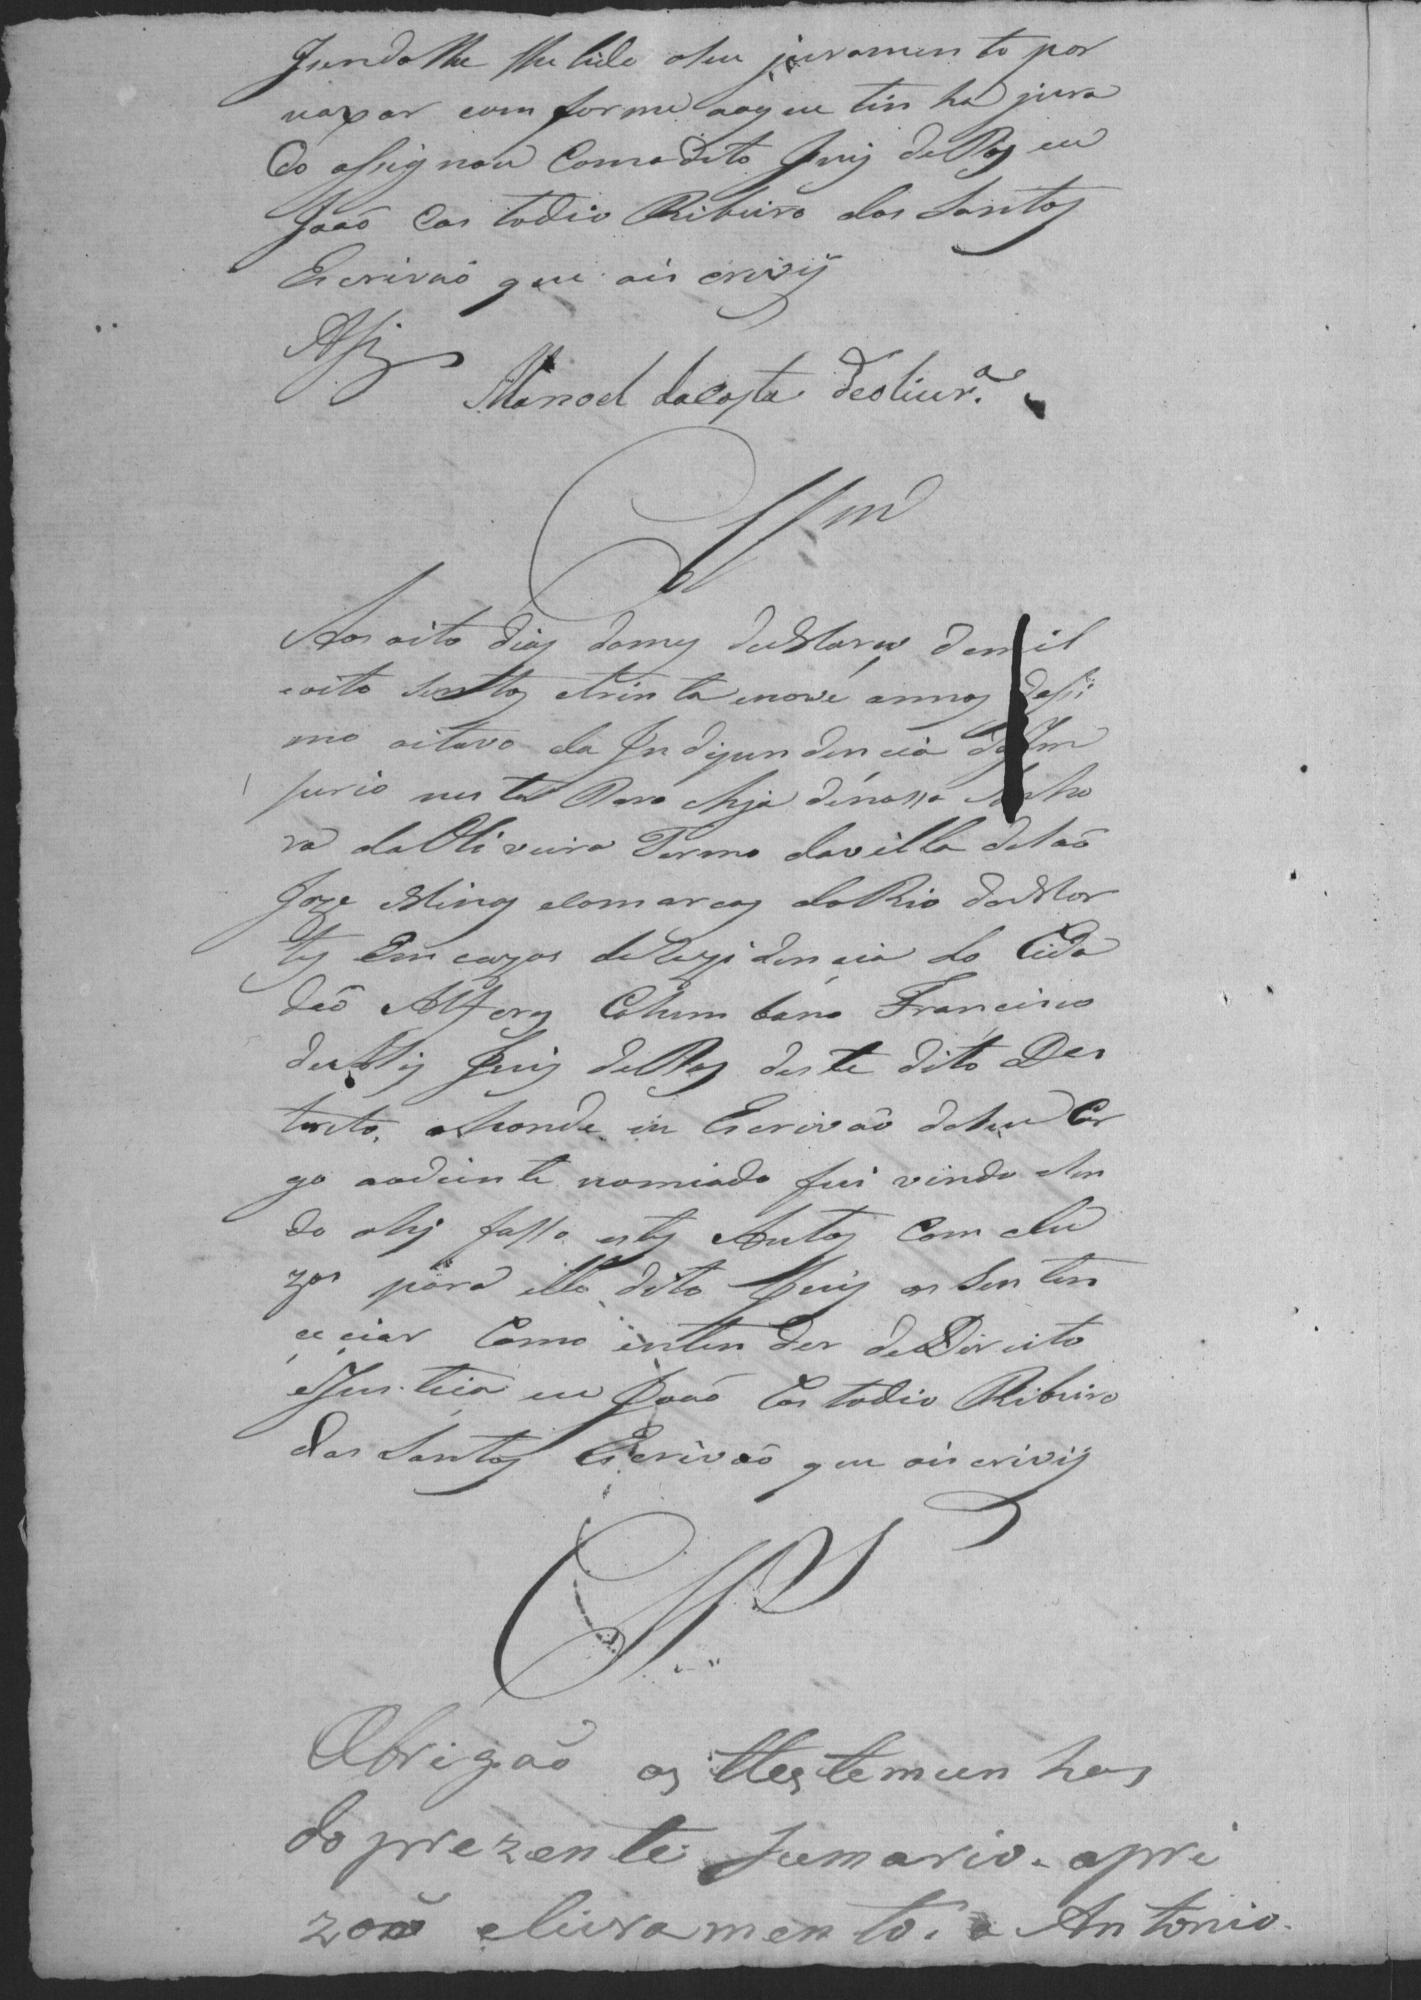 Sendolhe lhe lido oseu juramento por
com forme aoque tin ha jura
do assignou Comodito Juiz dePaz eu
João Cos todio Ribeiro dos Santos
Escrivaõ que ois crivij
Assis
Manoel daCosta deolivr.ª
Clm
Aos oito dias domes deMarso demil
eoito sentos etrin ta enove annos desi
mo oitavo da Indipendencia do Im
perio nesta Paro chja denossa Senho
ra daOliveira Termo davilla deSaõ
Joze Minas comarcas doRio dasMor
tes Em cazas deRezidencia do Cida
daõ Alferes Colum bano Francisco
Juiz dePaz deste dito Des
tirito, ahonde eu Escrivaõ deseu Car
go aodiente nomiado fui vindo esen
do ahj fasso estes Autos Com clu
zos para elle dito Juiz os Senten
ceciar Como enten der deDireito
eJus tica eu João Cos todio Ribeiro
dos Santos Escrivaõ que ois crivij
Obrigaõ as ttestemun has
doprezente sumario. apri
zoõ elivramento. a Antonio